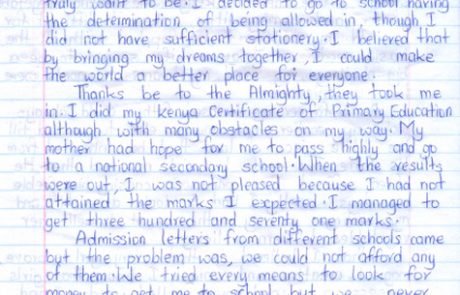 truly want to be. I decided to go to school having
the determination of being allowed in, though I
did not have sufficient stationery. I believed that
by bringing my dreams together, I could make
the world a better place for everyone.
Thanks be to the Almighty, they took me
in. I did my kenya Certificate of Primary Education
although with many obstacles on my way. My
mother had hope for me to pass highly and go
to a national secondary school. When the results
were out, I was not pleased because I had not
attained the marks I expected. I managed to
get three hundred and seventy one marks.
Admission letters from different schools came
but the problem was, we could not afford any
of them. We tried every means to look for
money to get me to school but we never